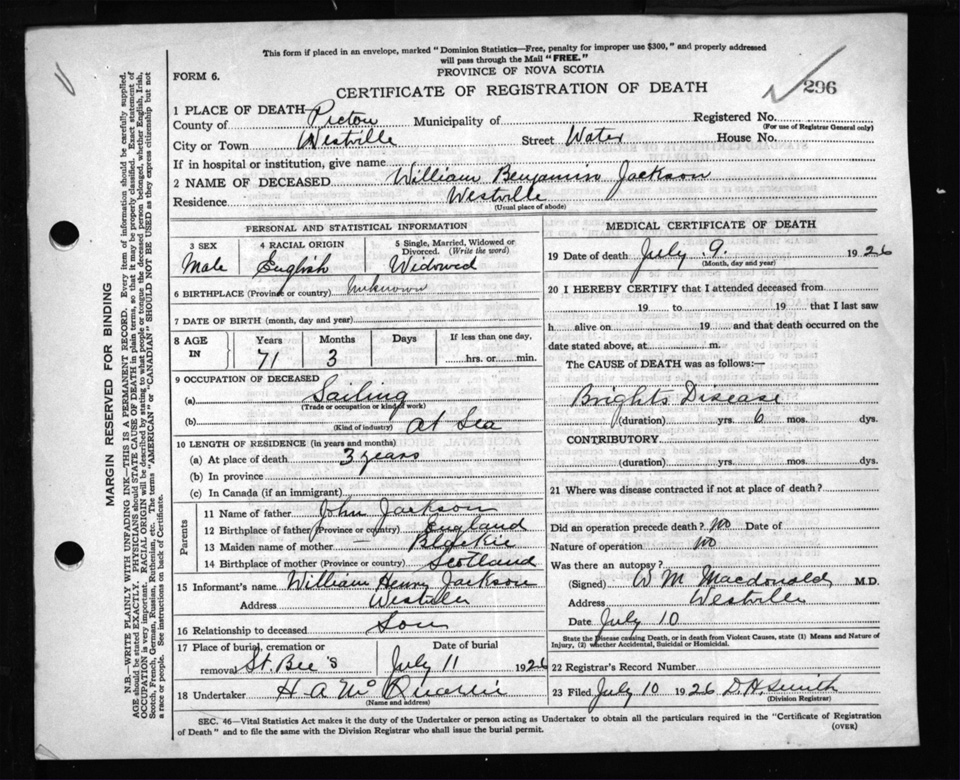 This form if placed in an envelope, marked "Dominion Statistics—Free, penalty for improper use $300," and properly addressed
will pass through the Mail "FREE."
PROVINCE OF NOVA SCOTIA
FORM 6.
CERTIFICATE OF REGISTRATION OF DEATH
296
1 PLACE OF DEATH
County of Pictou Municipality of Registered No.
(For use of Registrar General only)
City or Town Westville Street Water House No.
If in hospital or institution, give name
2 NAME OF DECEASED William Benjamin Jackson
Residence Westville
(Usual place of abode)
PERSONAL AND STATISTICAL INFORMATION
3 SEX 4 RACIAL ORIGIN 5 Single, Married, Widowed or
Divorced. (Write the word)
Male English Widowed
6 BIRTHPLACE (Province or country) Unknown
7 DATE OF BIRTH (month, day and year)
8 AGE IN Years Months Days If less than one day,
71 3 hrs. or min.
9 OCCUPATION OF DECEASED
(a) Sailing
(Trade or occupation or kind of work)
(b) At Sea
(Kind of industry)
10 LENGTH OF RESIDENCE (in years and months)
(a) At place of death 3 years
(b) In province
(c) In Canada (if an immigrant)
Parents
11 Name of father John Jackson
12 Birthplace of father (Province or country) England
13 Maiden name of mother — Blackie
14 Birthplace of mother (Province or country) Scotland
15 Informant's name William Henry Jackson
Address Westville
16 Relationship to deceased Son
17 Place of burial, cremation or Date of burial
removal St. Bee's July 11 1926
18 Undertaker H A Mc Quarrie
(Name and address)
MEDICAL CERTIFICATE OF DEATH
19 Date of death July 9. 1926
(Month, day and year)
20 I HEREBY CERTIFY that I attended deceased from
19 to 19 that I last saw
h alive on 19 and that death occurred on the
date stated above, at m.
The CAUSE of DEATH was as follows:—
Brights Disease
(duration) yrs. 6 mos. dys.
CONTRIBUTORY
(duration) yrs. mos. dys.
21 Where was disease contracted if not at place of death?
Did an operation precede death? No Date of
Nature of operation No
Was there an autopsy?
(Signed) W M Macdonald M.D.
Address Westville
Date July 10
State the Disease causing Death, or in death from Violent Causes, state (1) Means and Nature of
Injury, (2) whether Accidental, Suicidal or Homicidal.
22 Registrar's Record Number
23 Filed July 10 1926 D. H. Smith
(Division Registrar)
SEC. 46—Vital Statistics Act makes it the duty of the Undertaker or person acting as Undertaker to obtain all the particulars required in the "Certificate of Registration
of Death" and to file the same with the Division Registrar who shall issue the burial permit.
(OVER)
MARGIN RESERVED FOR BINDING
N.B.—WRITE PLAINLY WITH UNFADING INK—THIS IS A PERMANENT RECORD. Every item of information should be carefully supplied.
AGE should be stated EXACTLY. PHYSICIANS should STATE CAUSE OF DEATH in plain terms, so that it may be properly classified. Exact statement of
OCCUPATION is very important. RACIAL ORIGIN will be described by stating to what people or tongue the deceased person belonged, whether English, Irish,
Scotch, French, German, Russian, Ruthenian, etc. The terms "AMERICAN" or "CANADIAN" SHOULD NOT BE USED as they express citizenship but not
a race or people. See instructions on back of Certificate.